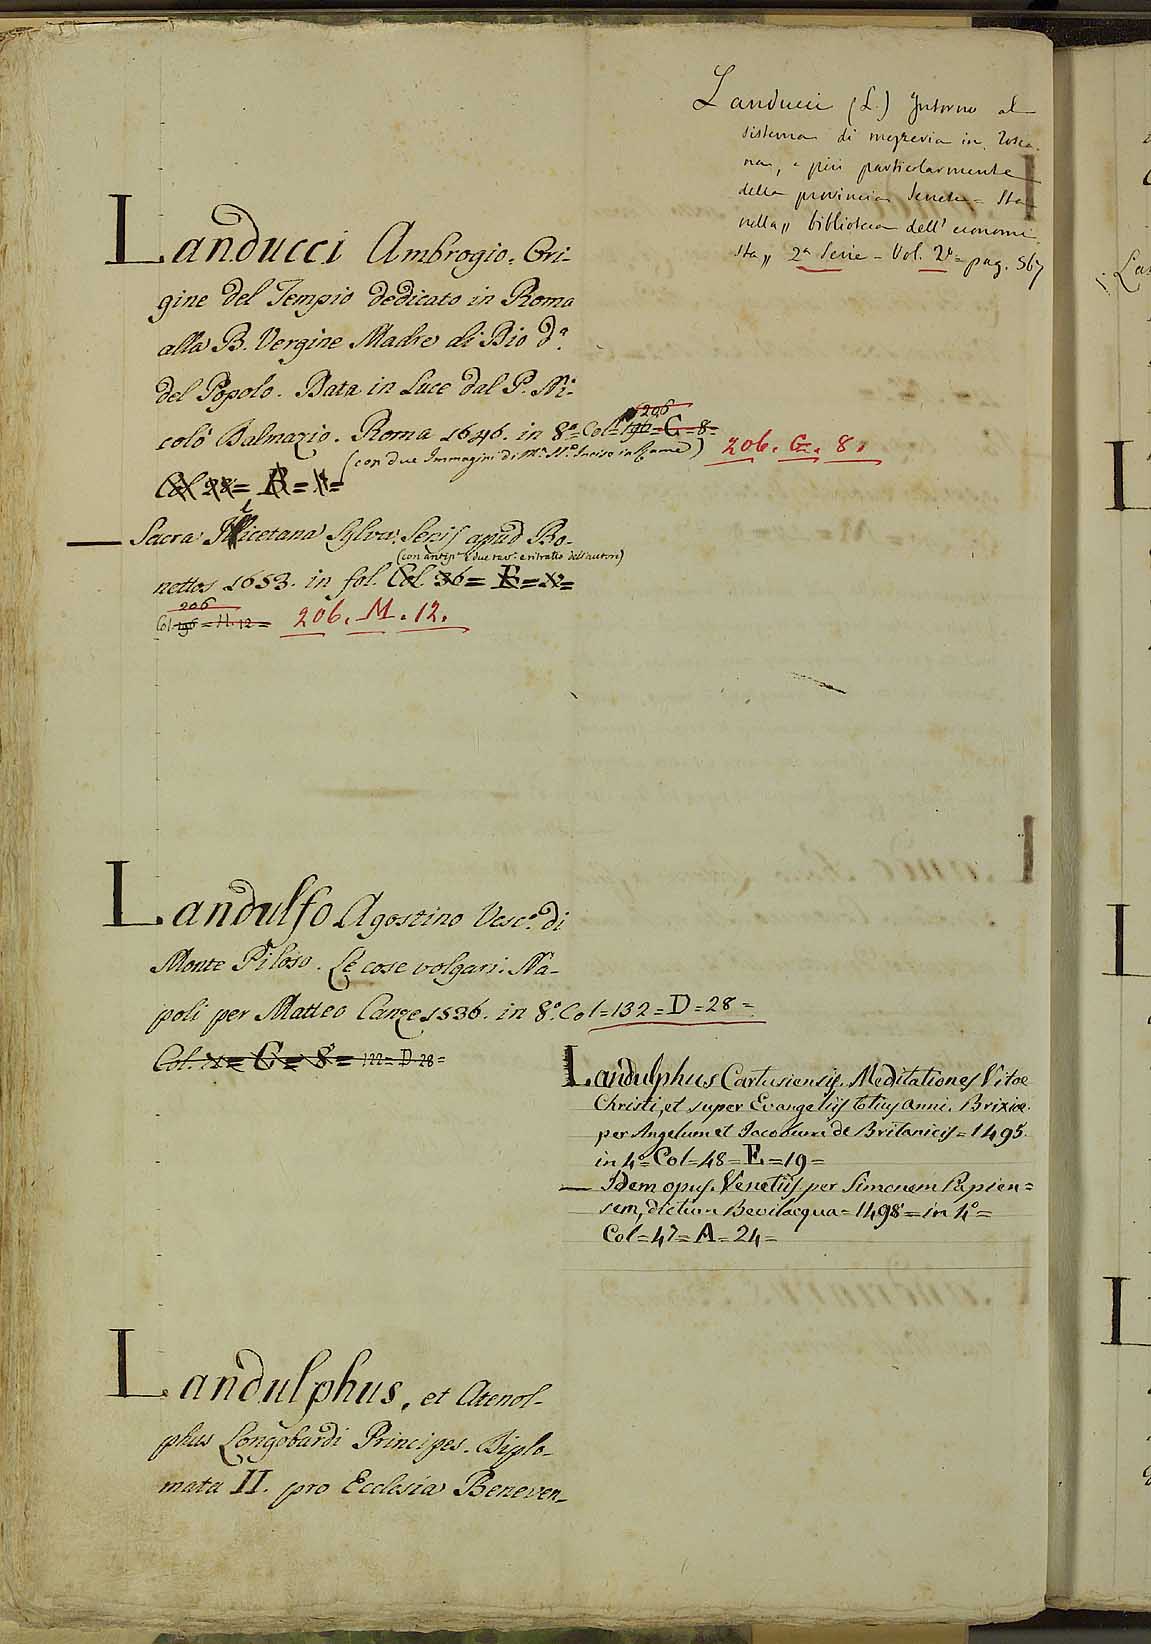 Landucci (L.) Intorno al
sistema di mezzeria in Tosca-
na, e più particolarmente
della provincia Senese = Sta
nella „ biblioteca dell' economi-
sta „ 2ª Serie - Vol. 2º = pag. 567
Landucci Ambrogio. Ori-
gine del Tempio dedicato in Roma
alla B. Vergine Madre di Dio dª
del Popolo. Data in Luce dal P. Ni-
colò Dalmazio. Roma 1646. in 8º Col = 196 = G = 8 =
206
206. G. 8.
(con due Immagini di Mª Nª Incise in Rame)
Col 28 = B =
Sacra Ilicetana Sylva. Senis apud Bo-
(con antip. due tav. e ritratto dell'autore)
nettos 1653. in fol. Col. 36 = E =
206
Col 196 = M. 12 = 206. M. 12.
Landulfo Agostino Vescº di
Monte Piloso. Le cose volgari. Na-
poli per Matteo Canze 1536. in 8º Col = 132 = D = 28 =
Col. = C = 8 = 122 = D 28 =
Landulphus Cartusiensis. Meditationes Vitae
Christi, et super Evangeliis totius anni. Brixiae
per Angelum et Jacobum de Britanicis = 1495.
in 4º = Col = 48 = E = 19 =
— Idem opus. Venetiis per Simonem Papien=
sem, dictum Bevilacqua = 1498 = in 4º =
Col = 47 = A = 24 =
Landulphus, et Atenol-
phus Longobardi Principes. Diplo-
mata II. pro Ecclesia Beneven-